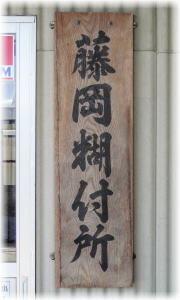 藤岡糊付所